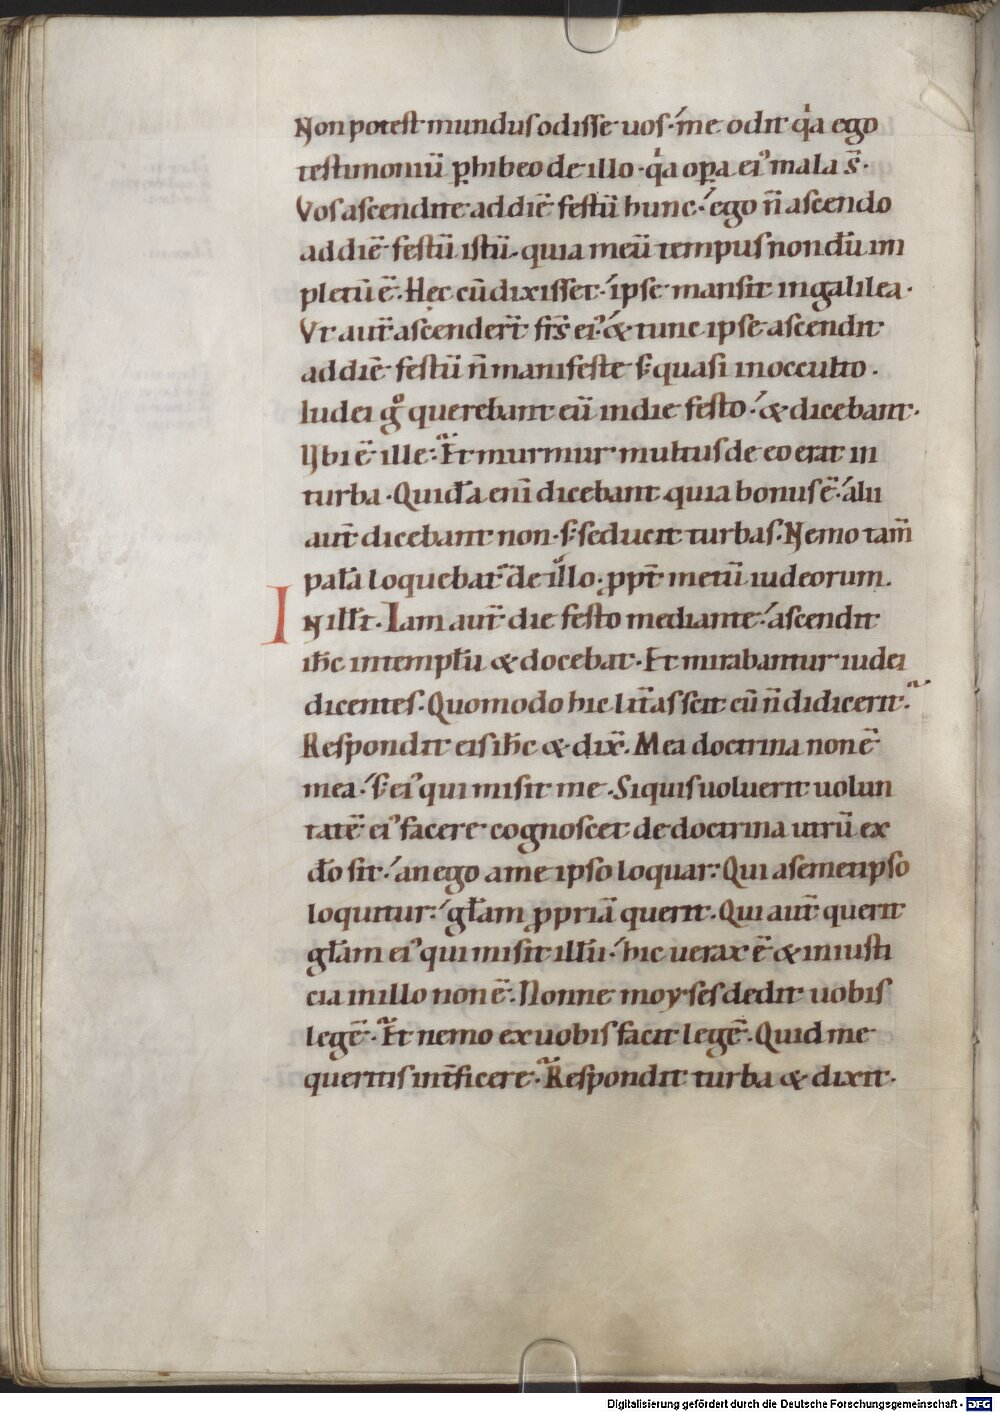 Non potest mundus odisse uos· me odit qͥa ego
testimoniū ꝑhibeo de illo· qͥa oꝑa eiꝰ mala s̄·
Vos ascendite ad diē festū hunc· ego n̄ ascendo
ad diē festū istū· quia meū tempus nondū im
pletū ē· Hęc cū dixisset· ipse mansit in galilea·
Vt aut̄ ascendert̄ frs̄ eiꝰ· & tunc ipse ascendit
ad diē festū n̄ manifeste s; quasi in occulto·
Iudei gͦ querebant eū in die festo· & dicebant·
Vbi ē ille· Et murmur multus de eo erat in
turba· Quidā eni dicebant quia bonus ē· alii
aut̄ dicebant non· s; seducit turbas· Nemo tam̄
palā loquebat᷑ de illo· ꝓpt̄ metū iudeorum·
IN ill̄t· Iam aut̄ die festo mediante· ascendit
ih̄c in templū & docebat· Et mirabantur iudei
dicentes· Quomodo hic lit̄as scit cū n̄ didicerit·
Respondit eis ih̄c & dix̄· Mea doctrina non ē
mea· s; eiꝰ qui misit me· Si quis uoluerit uolun
tatē eiꝰ facere cognoscet de doctrina utrū ex
do̅ sit· an ego a me ipso loquar· Qui a semetipso
loquitur· gl̄am ꝓpriā querit· Qui aut̄ querit
gl̄am eiꝰ qui misit illū· hic uerax ē & iniusti
cia in illo non ē· Nonne moyses dedit uobis
legē· Et nemo ex uobis facit legē· Quid me
queritis int̄ficere· Respondit turba & dixit·
Digitalisierung gefördert durch die Deutsche Forschungsgemeinschaft - DFG